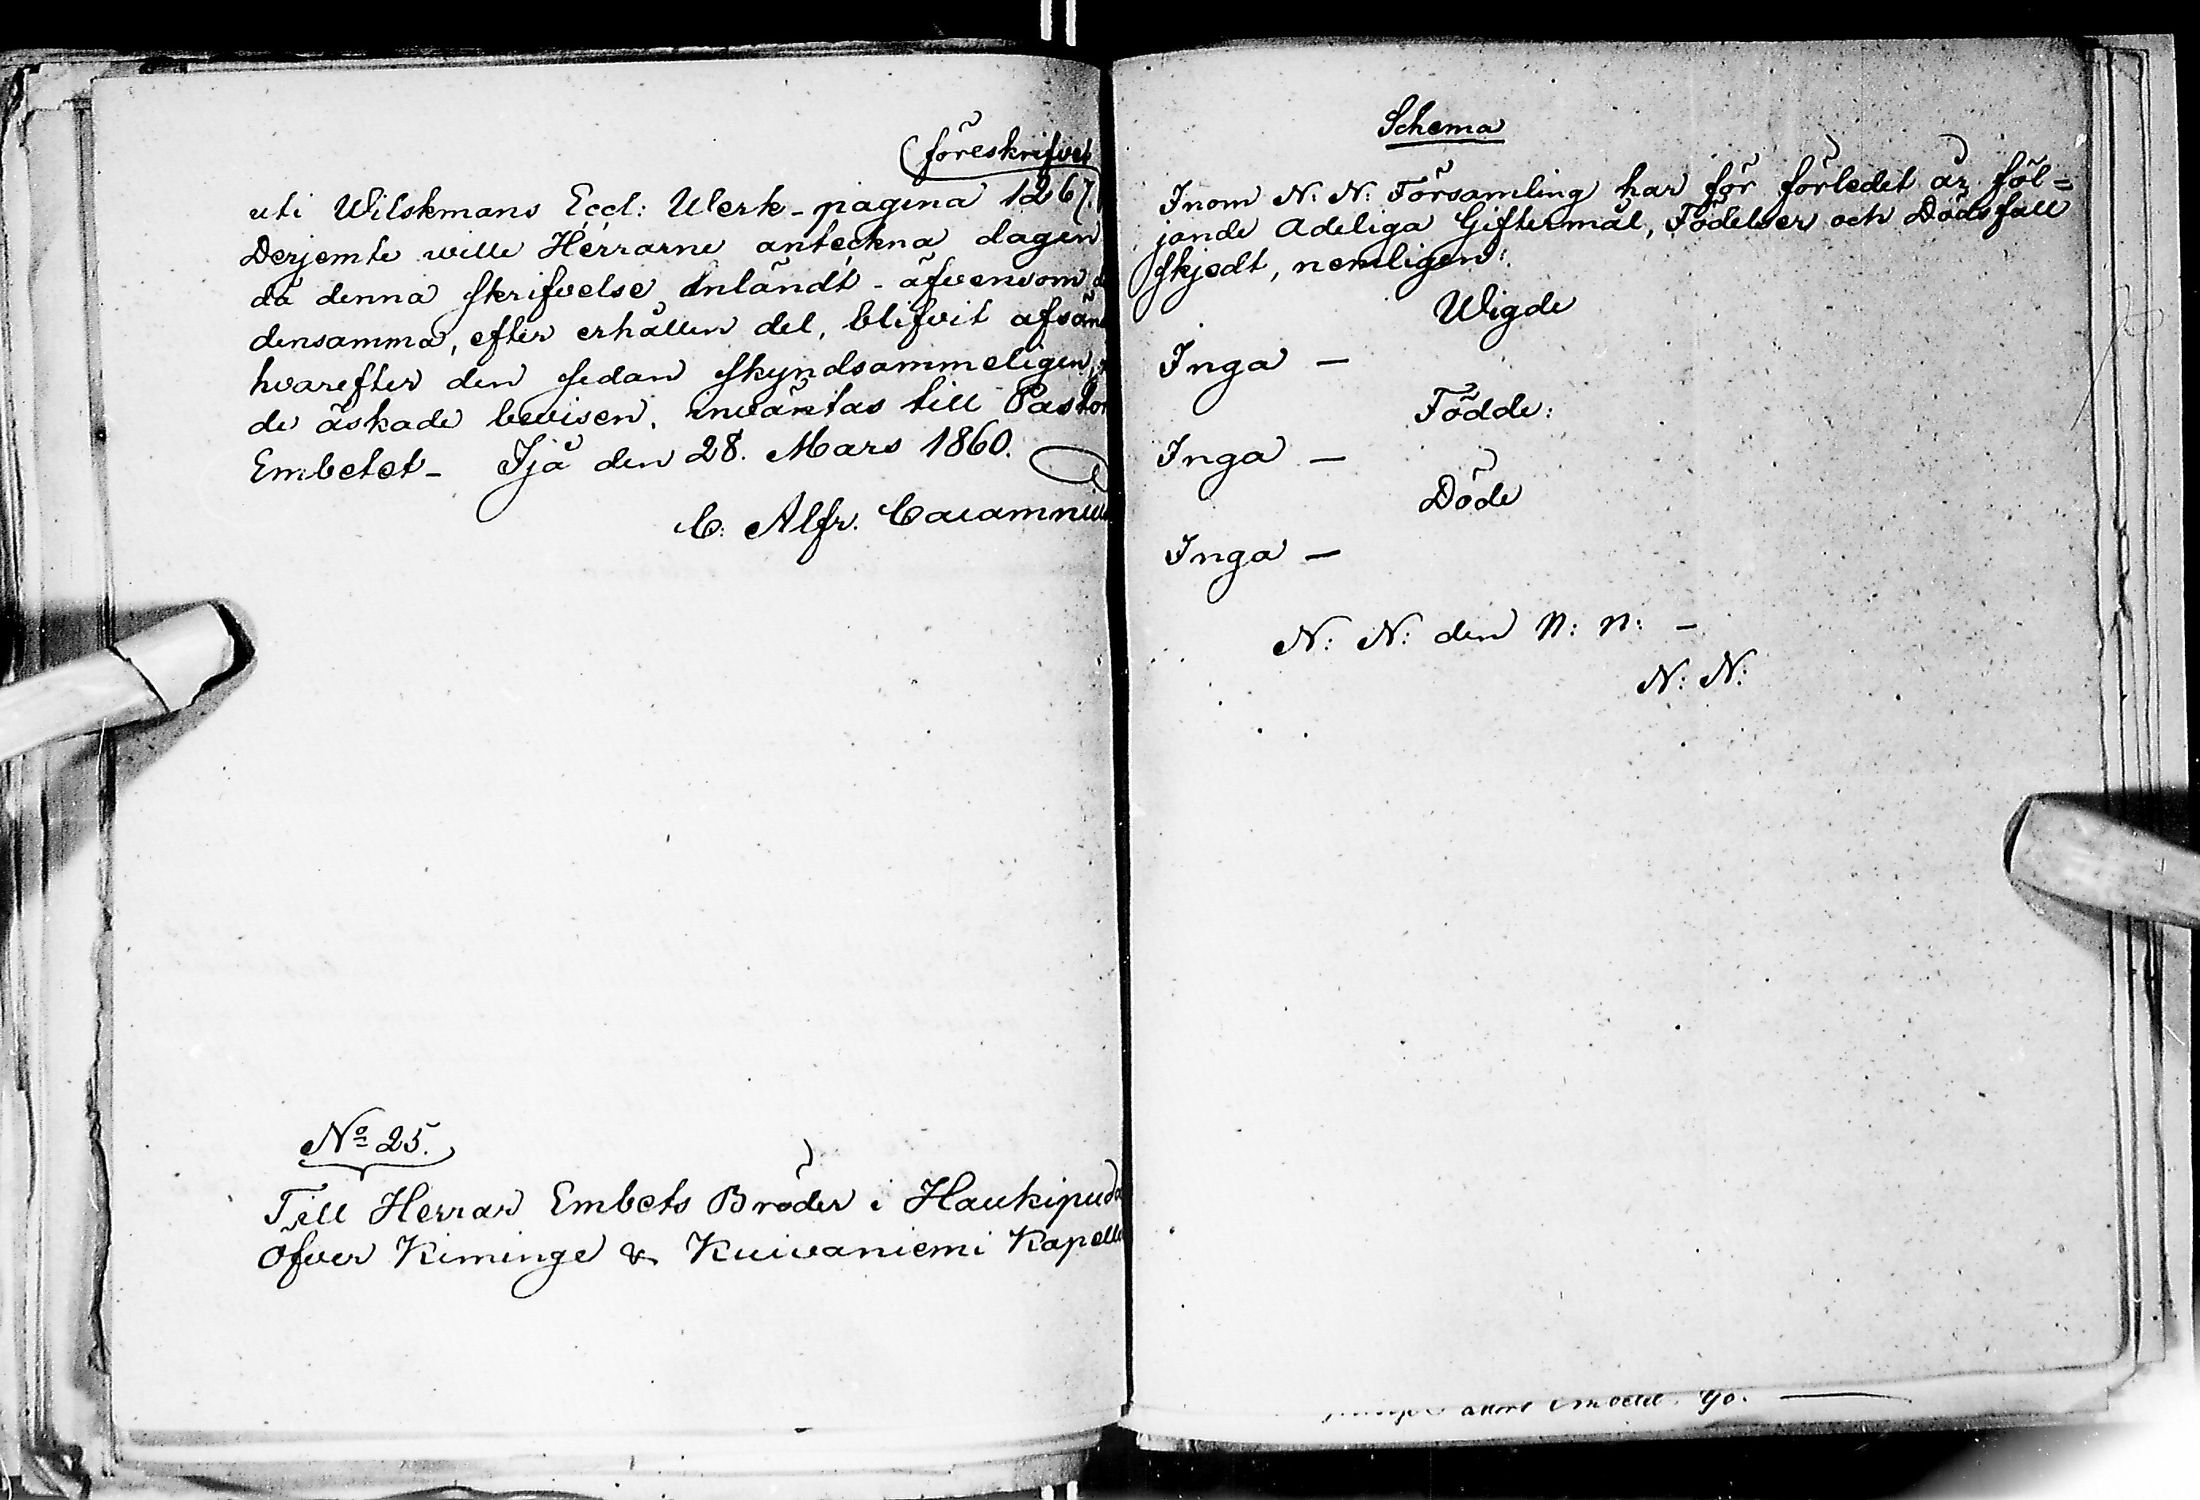 (föreskrifvet
uti Wilskmans Eccl: Werk - pagina 1267.
Derjemte wille Herrarne anteckna dagen
då denna skrifvelse inländt - äfvensom
densamma, efter erhållen del, blifvit afsänd
hvarefter den sedan skyndsammeligen,
de äskade bevisen, inväntas till Pastors
Embetet - Ijå den 28. Mars 1860.
C: Alfr.
No 25.
Till Herrar Embets Bröder i Haukipuda
Öfver Kiminge & Kuivaniemi Kapell
Schema
Inom N: N: Församling har för förledet år föl=
jande Adeliga Giftermål, Födelser och Dödsfall
skjedt, nemligen:
Wigde
Inga —
Födde:
Inga —
Döde
Inga —
N: N: den n: n: —
N: N: